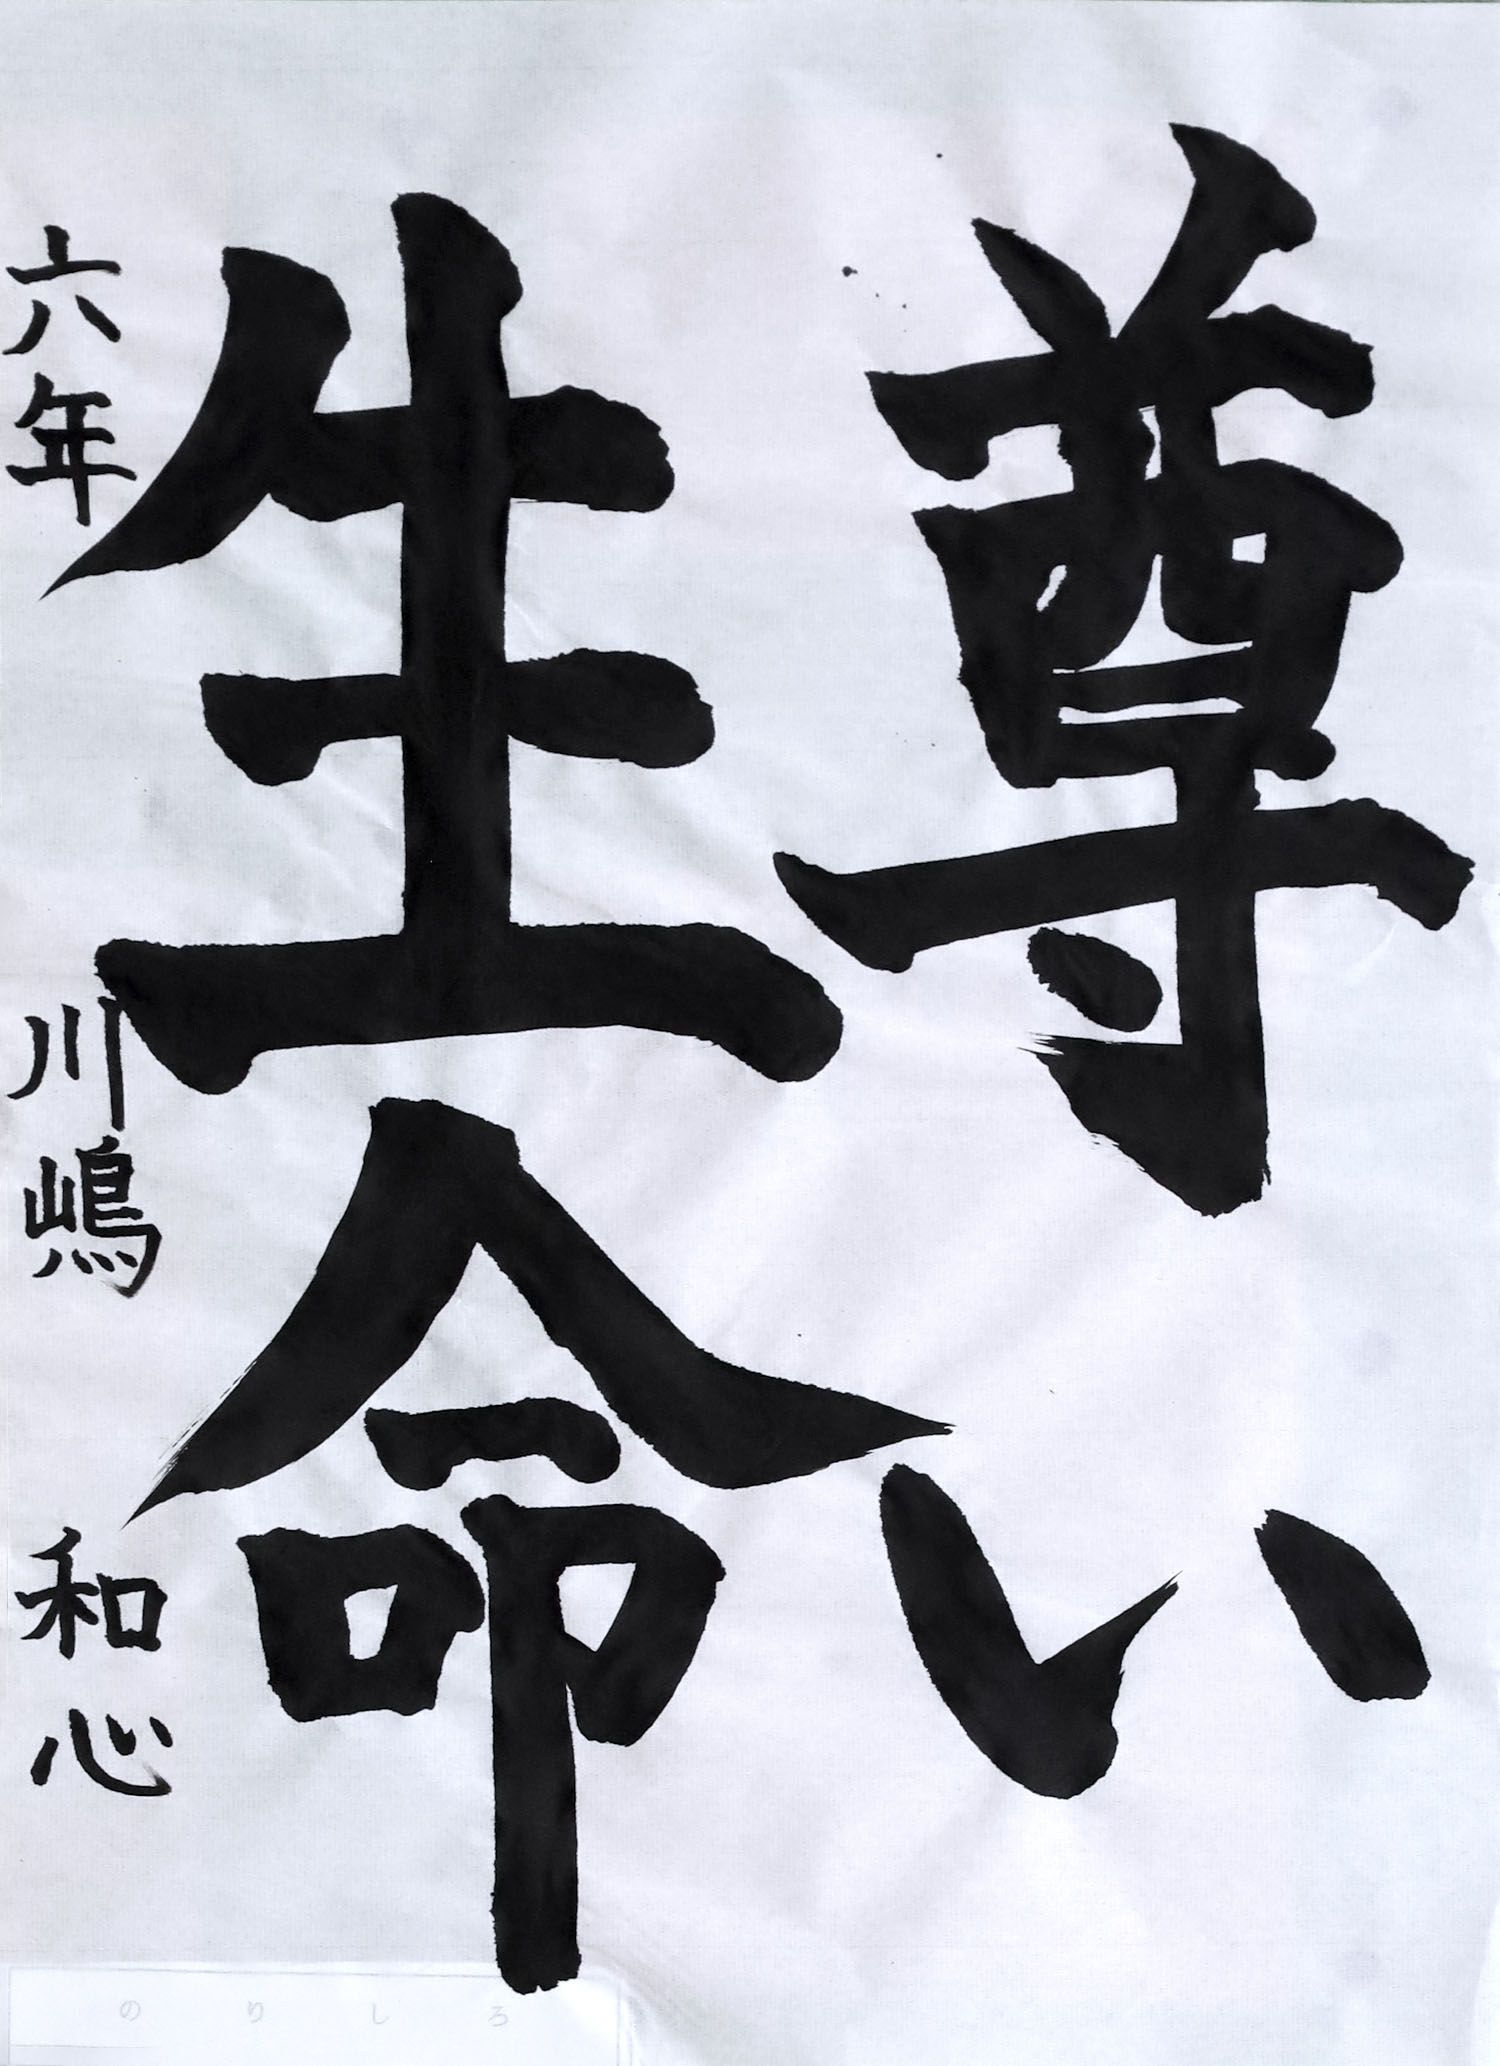 尊い
生命
六年 川嶋 和心
のりしろ